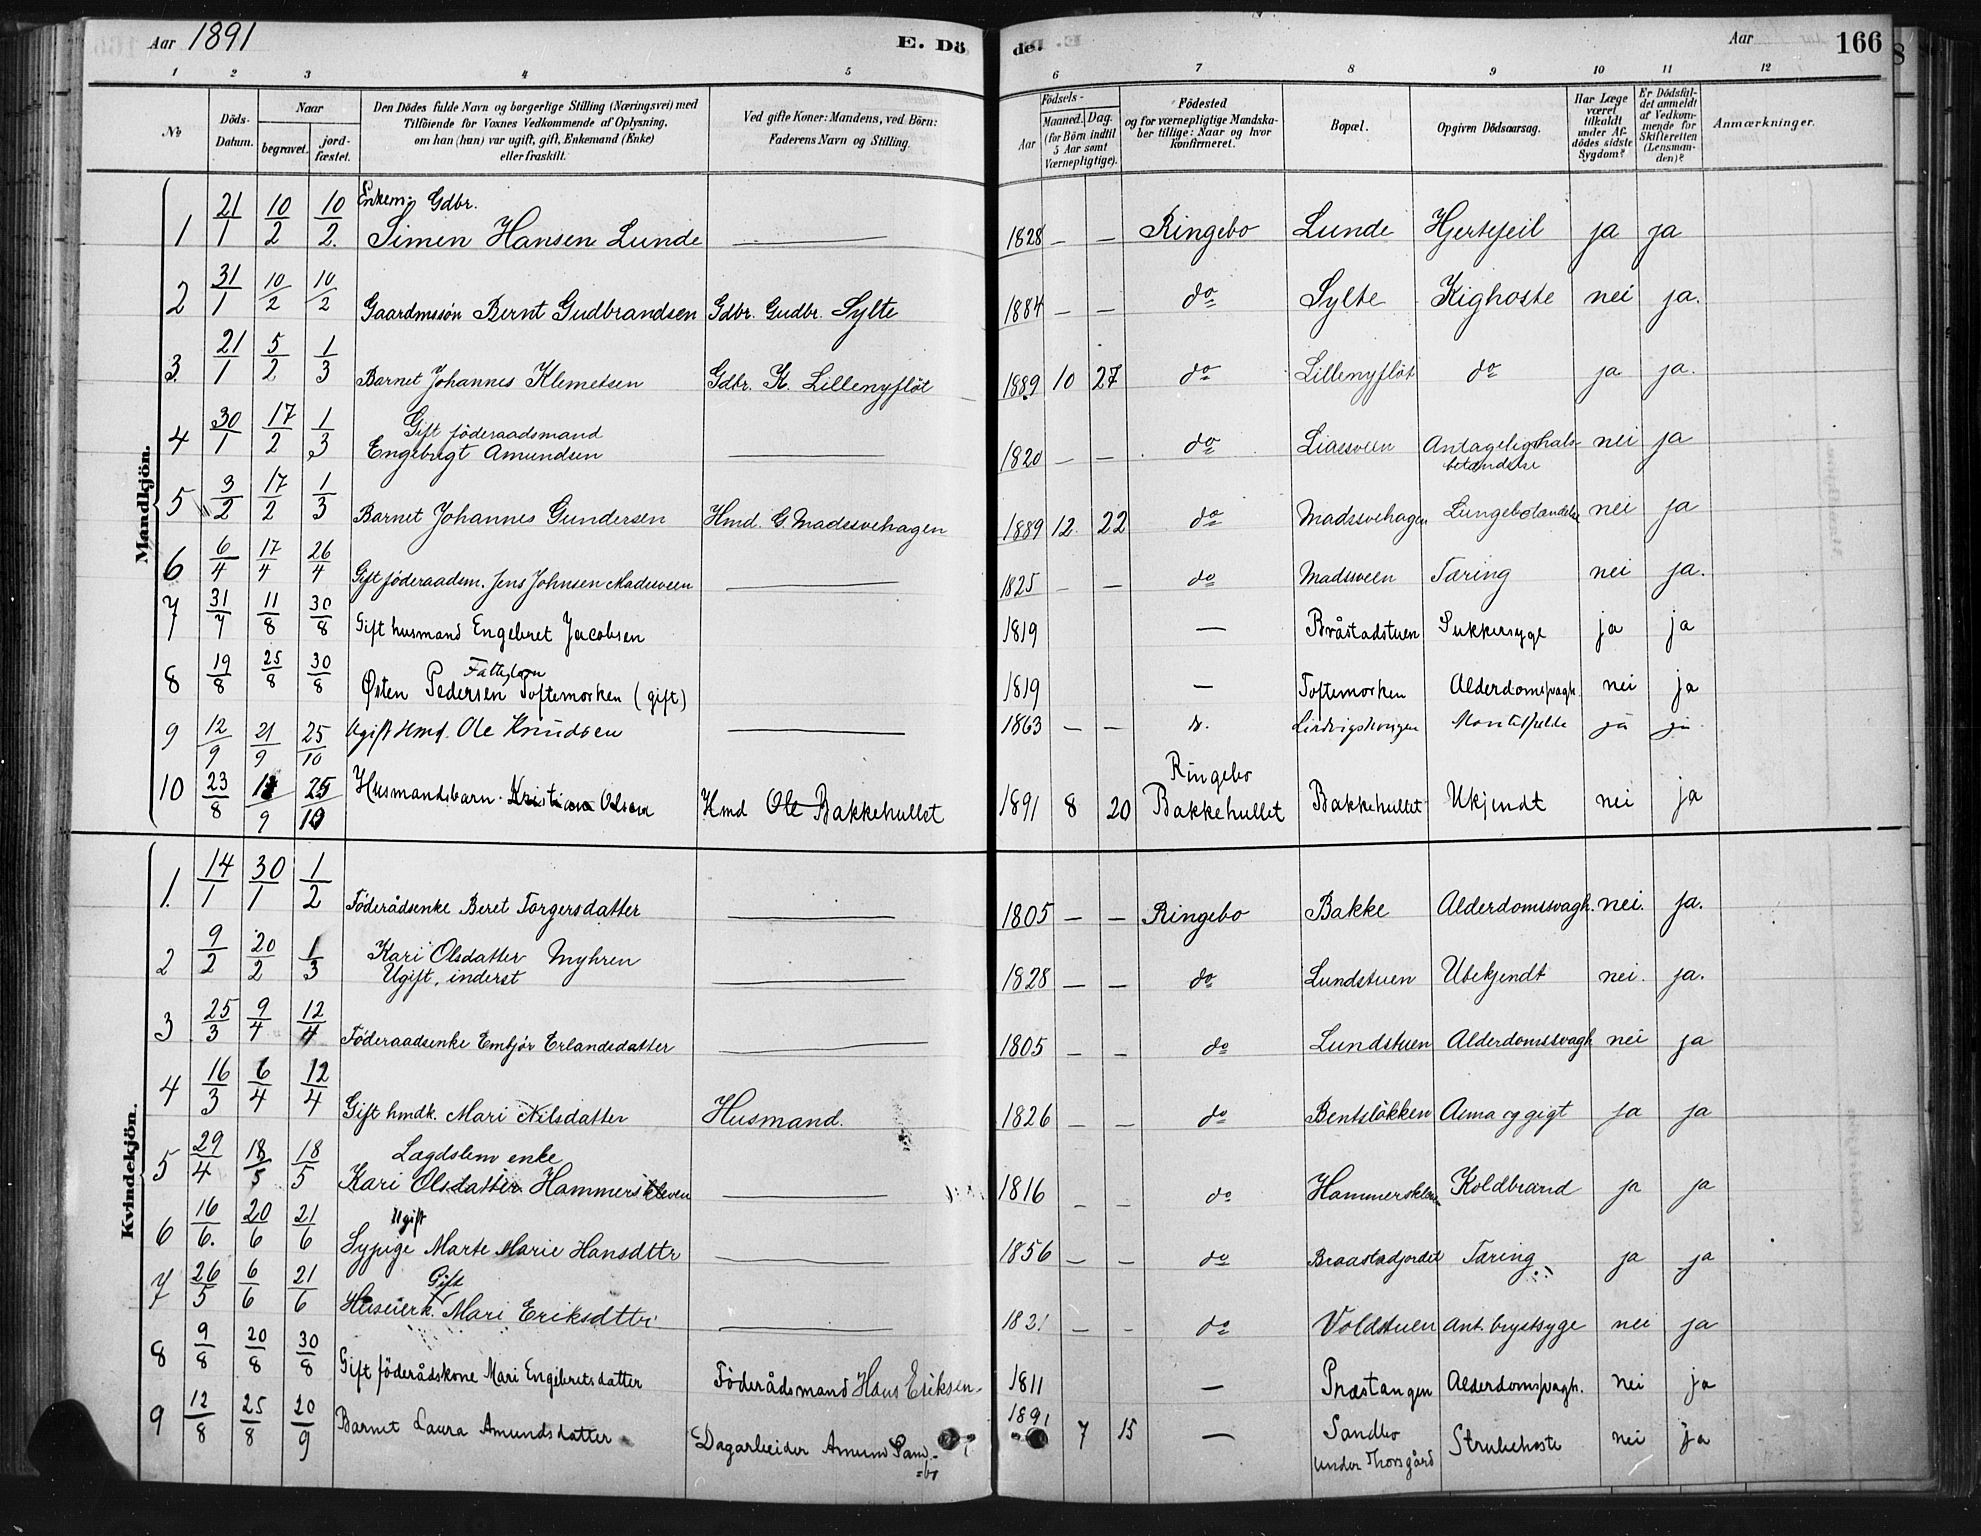 Aar 1891 E. Dö de. Aar 166
1 2 3 4 5 6 7 8 9 10 11 12
No
Döds-Datum.
Naar
begravet. jord-fæstet.
Den Dödes fulde Navn og borgerlige Stilling (Næringsvei) med
Tilföiende for Voxnes Vedkommende af Oplysning,
om han (hun) var ugift, gift, Enkemand (Enke)
eller fraskilt.
Ved gifte Koner: Mandens, ved Börn:
Faderens Navn og Stilling.
Födsels-
Aar Maaned. Dag.
(for Börn indtil
5 Aar samt
Værnepligtige).
Födested
og for værnepligtige Mandska-
ber tillige: Naar og hvor
konfirmeret.
Bopæl.
Opgiven Dödsaarsag.
Har Læge
været
tilkaldt
under Af-
dödes sidste
Sygdom?
Er Dödsfal-
det anmeldt
af Vedkom-
mende for
Skifteretten
(Lensman-
den)?
Anmærkninger.
Mandkjön.
Enkem. Gdbr.
1 21/1 10/2 10/2. Simen Hansen Lunde — 1828 — — Ringebo Lunde Hjertefeil ja ja
2 31/1 10/2 10/2 Gaardmssön Bernt Gudbrandsen Gdbr. Gudbr. Sylte 1884 — — do Sylte Kighoste nei ja.
3. 21/1 5/2 1/3 Barnet Johannes Klemetsen Gdbr. K. Lillenyflöt 1889 10 27 do Lillenyflöt do ja ja.
4 30/1 17/2 1/3 Gift föderaadsmand
Engebrigt Amundsen — 1820 — — do Liaesveen Antagelig hals
betændelse nei ja
5 3/2 17/2 1/3 Barnet Johannes Gundersen Hmd. G. Madssvehagen 1889 12. 22 do Madssvehagen Lungebetændelse nei ja
6 6/4 17/4 26/4 Gift föderaadsm. Jens Johnsen Madsveen — 1825 — — do Madssveen Tæring nei ja.
7 31/7 11/8 30/8 Gift husmand Engebret Jacobsen 1819 — Bråstadstuen Sukkersyge ja ja
8 19/8 25/8 30/8 Østen Pedersen Toftemorken (gift) 1819 — Toftemorken Alderdomsvagh. nei ja
9 12/9 21/9 25/10 Ugift Hmd. Ole Knudsen — 1863 — — ja ja
10 23/8 /9 25/10 Husmandsbarn Kristian Olsen Hmd Ole Bakkehullet 1891 8 20 Ringebo
Bakkehullet Bakkehullet Ukjendt nei ja
Kvindekjön.
1. 14/1 30/1 1/2 Föderådsenke Beret Torgersdatter — 1805 — — Ringebo Bakke Alderdomssvagh. nei. ja.
2 9/2 20/2 1/3 Kari Olsdatter Myhren
Ugift, inderst — 1828 — — do Lundstuen Ubekjendt nei. ja.
3 25/3 9/4 12/4 Föderaadsenke Embjör Erlandsdatter — 1805 — — do Lundstuen Alderdomssvagh nei ja
4 16/3 6/4 12/4 Gift hmdk. Mari Nilsdatter Husmand. 1826 — — do Bentslökken Asma og gigt ja ja
5 29/4 18/5 18/5 Lægdslem enke
Kari Olsdatter Hammerskleven — 1816 — — do Hammersklev Koldbrand ja ja
6 16/6. 20/6 21/6 Ugift
Sypige Marte Marie Hansdttr — 1856 — — do Braastadjordet Tæring ja ja
7 26/5 6/6 21/6 Gift
Huseierk. Mari Eriksdttr — 1831 — — do Voldstuen Ant. brystsyge nei ja
8 9/8 20/8 30/8 Gift föderådskone Mari Engebretsdatter Föderådsmand Hans Eriksen 1811 — Præstangen Alderdomsvagh. nei ja
9 12/8 25/8 20/9 Barnet Laura Amundsdatter Dagarbeider Amund Sand-
=bo 1891 7 15 — Sandbo
under Thorsgård Strubehoste nei ja